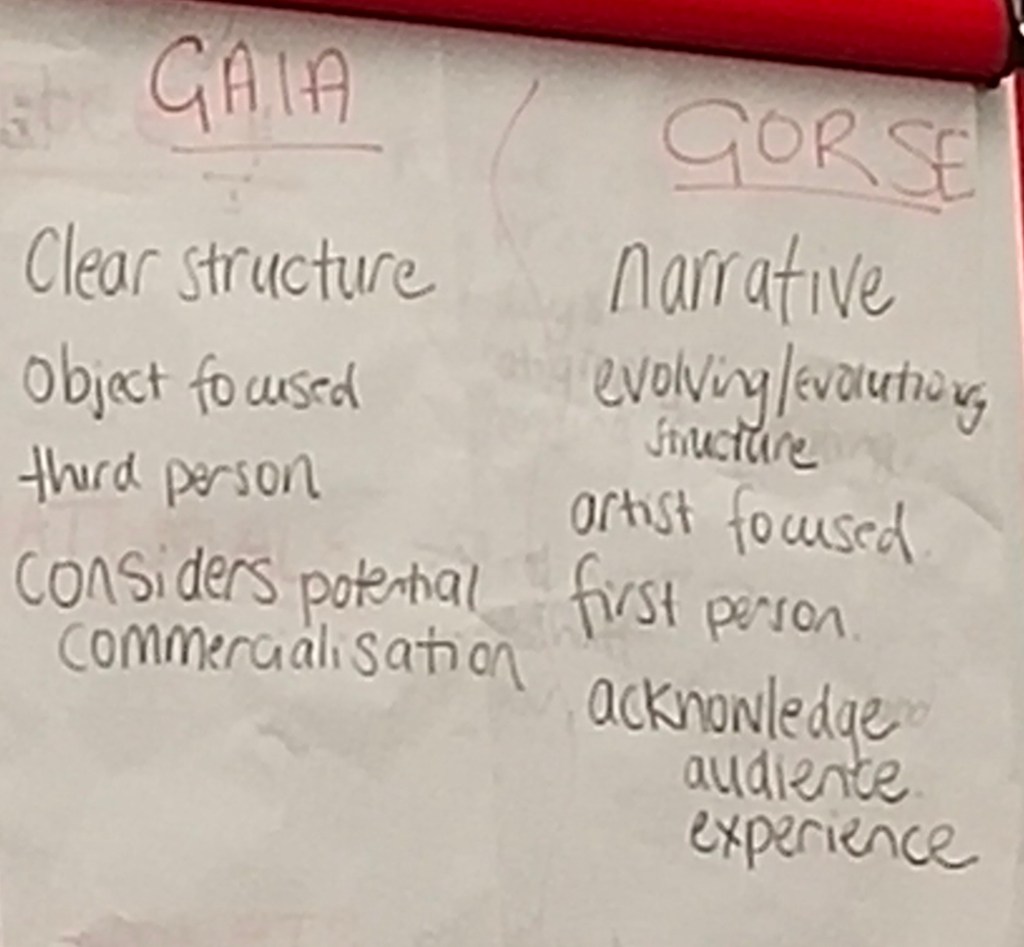 GAIA
Clear structure
Object focused
third person
Considers potential
commercialisation
GORSE
narrative
evolving/
structure
artist focused.
first person.
acknowledge
audience.
experience